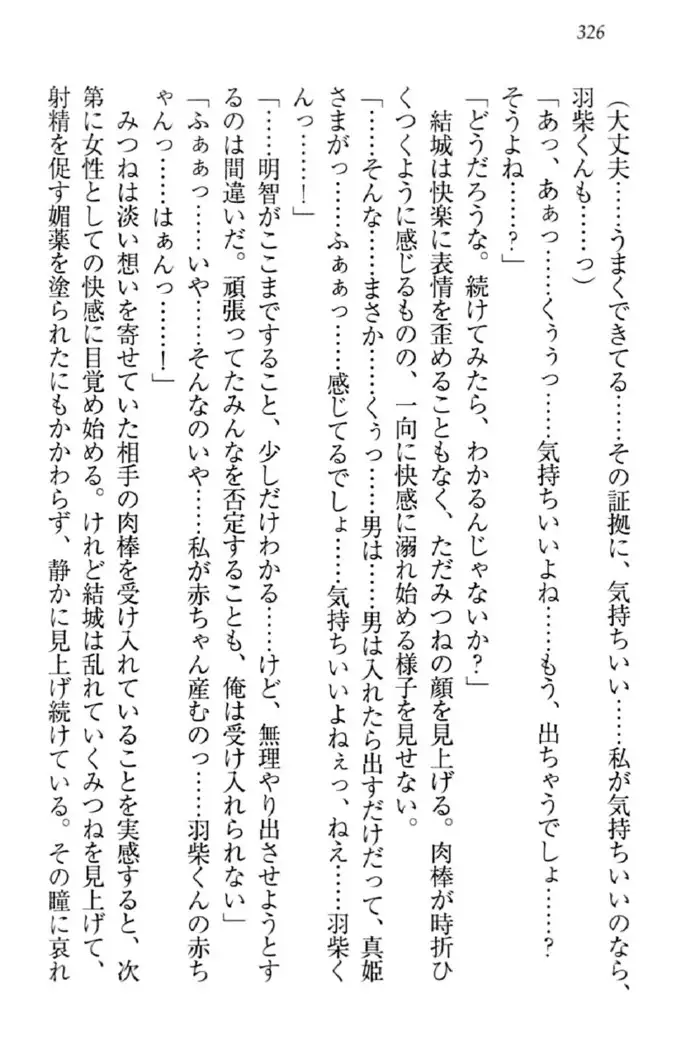 326
(大丈夫……うまくできてる……その証拠に、気持ちいい……私が気持ちいいのなら、
羽柴くんも……っ)
「あっ、あぁっ……くぅうっ……気持ちいいよね……もう、出ちゃうでしょ……?
そうよね……?」
「どうだろうな。続けてみたら、わかるんじゃないか?」
　結城は快楽に表情を歪めることもなく、ただみつねの顔を見上げる。肉棒が時折ひ
くつくように感じるものの、一向に快感に溺れ始める様子を見せない。
「……そんな……まさか……くぅっ……男は……男は入れたら出すだけだって、真姫
さまがっ……ふぁぁっ……感じてるでしょ……気持ちいいよねぇっ、ねえ……羽柴く
んっ……!」
「……明智がここまですること、少しだけわかる……けど、無理やり出させようとす
るのは間違いだ。頑張ってたみんなを否定することも、俺は受け入れられない」
「ふぁぁっ……いや……そんなのいや……私が赤ちゃん産むのっ……羽柴くんの赤ち
ゃんっ……はぁんっ……!」
　みつねは淡い想いを寄せていた相手の肉棒を受け入れていることを実感すると、次
第に女性としての快感に目覚め始める。けれど結城は乱れていくみつねを見上げて、
射精を促す媚薬を塗られたにもかかわらず、静かに見上げ続けている。その瞳に哀れ